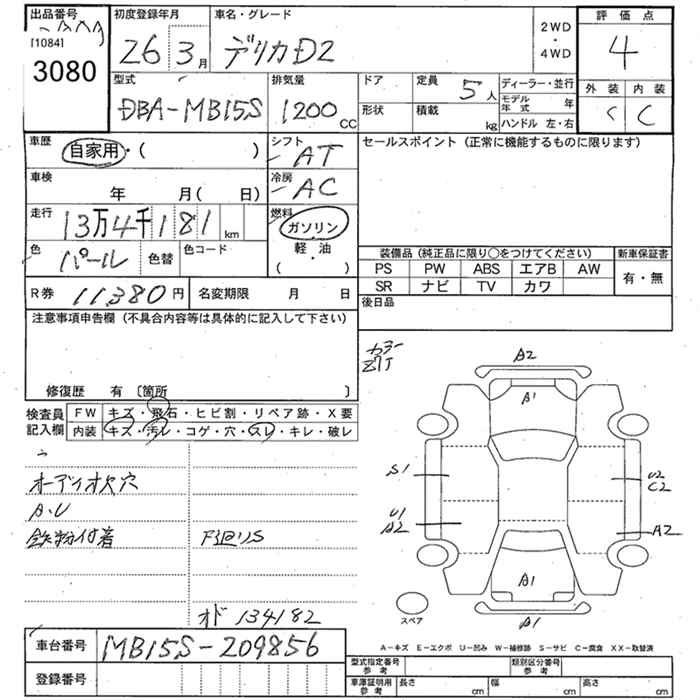 出品番号
[1084]
3080
初度登録年月
26 3月
車名・グレード
デリカD2
2WD
・
4WD
評価点
4
型式
DBA-MB15S
排気量
1200 CC
ドア
形状
定員 5人
積載 kg
ディーラー・並行
モデル年式 年
ハンドル 左・右
外装 内装
C C
車歴
自家用・( )
車検
年 月( 日)
走行
13万4千181 km
色 パール 色替 色コード
シフト AT
冷房 AC
燃料 ガソリン
・
軽・油
( )
セールスポイント(正常に機能するものに限ります)
装備品(純正品に限り○をつけてください)
新車保証書
PS PW ABS エアB AW
SR ナビ TV カワ
有・無
後日品
R券 11,380円 名変期限 月 日
注意事項申告欄(不具合内容等は具体的に記入して下さい)
修復歴 有 〔箇所 〕
検査員記入欄
FW キズ・飛石・ヒビ割・リペア跡・X要
内装 キズ・汚レ・コゲ・穴・スレ・キレ・破レ
オーディオ欠穴
A.U
鉄粉付着 F廻りS
オド 134182
A2
A1
S1
U2
C2
U1
A2
A2
A1
A1
スペア
車台番号 MB15S-209856
登録番号
A-キズ E-エクボ U-凹み W-補修跡 S-サビ C-腐食 XX-取替済
型式指定番号 参考
類別区分番号 参考
車庫証明用 参考
長さ cm 幅 cm 高さ cm